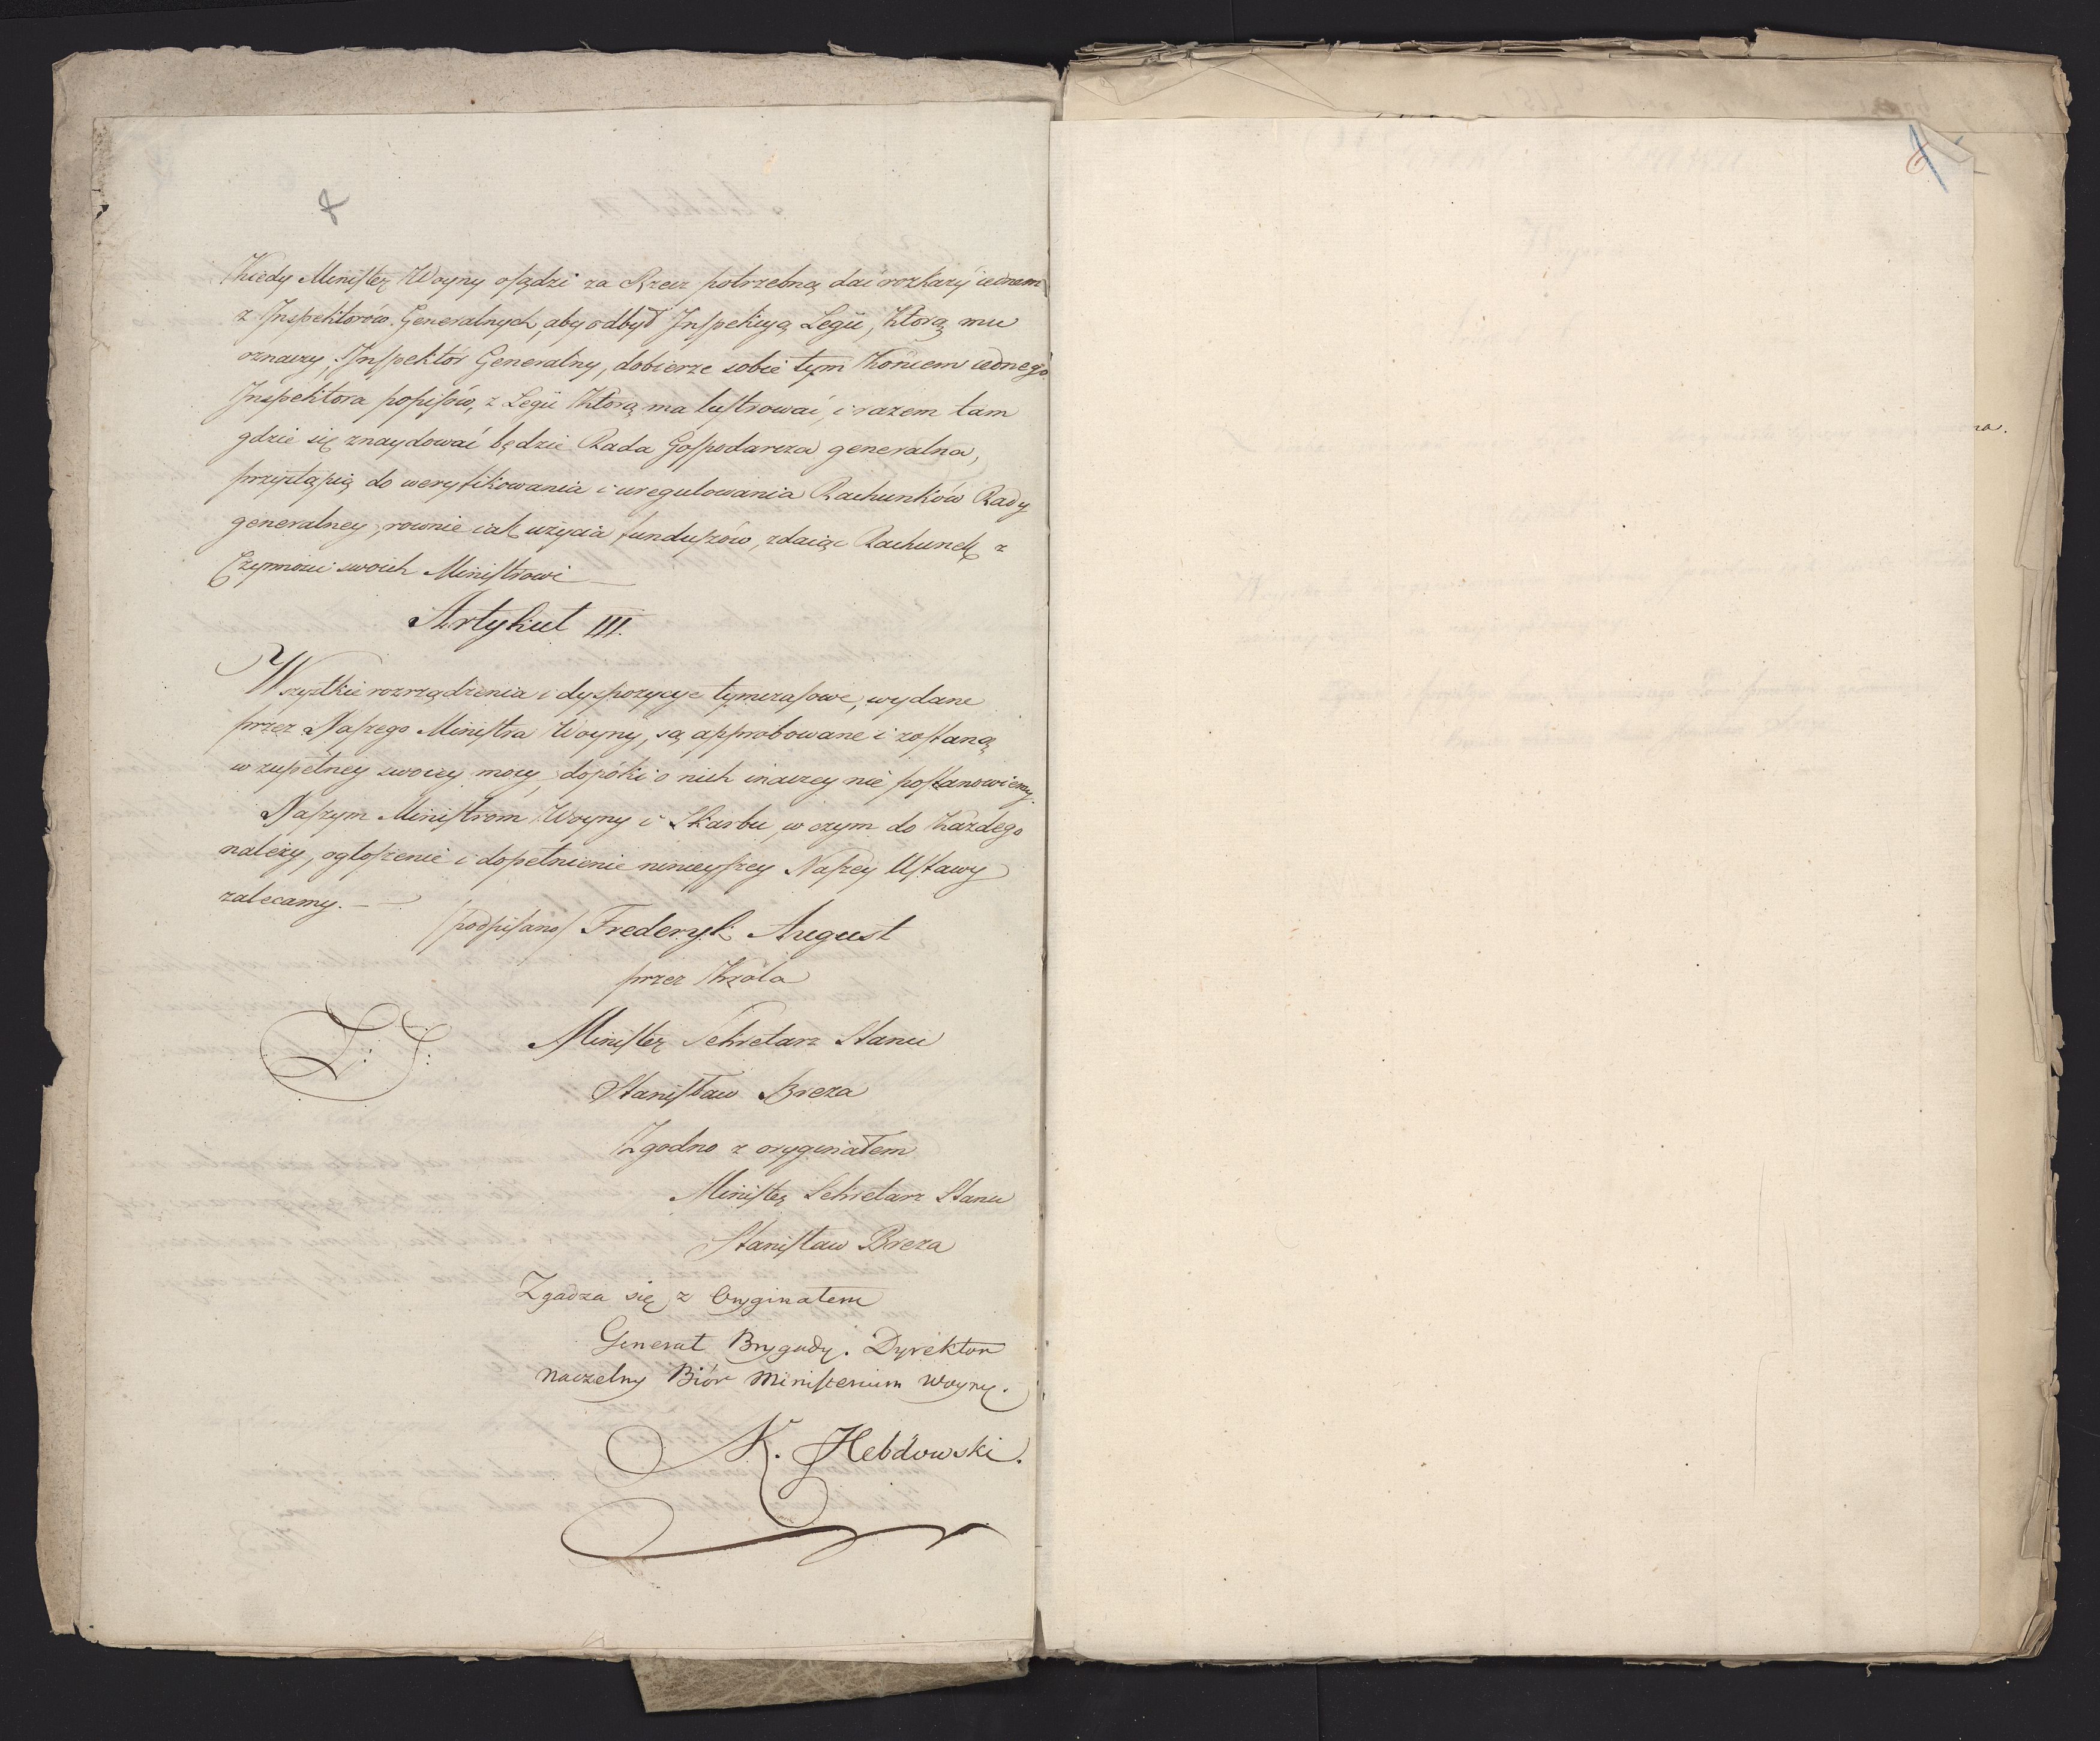 Kiedy Minister Woyny osądzi za Rzecz potrzebną dać rozkazy iednemu
z Inspektorów Generalnych, aby odbył Inspekcyą Legii, którą mu
oznaczy, Inspektór Generalny, dobierze sobie tym Końcem iednego
Inspektora popisów, z Legii Którą ma lustrować, i razem tam
gdzie się znaydować będzie Rada Gospodarcza generalna,
przystąpią do weryfikowania i uregulowania Rachunków Rady
generalney, rownie iak użycia funduszów, zdaiąc Rachunek z
Czynności swoich Ministrowi
Artykuł III.
Wszystkie rozrządzenia i dyspozycye tymczasowe, wydane
przez Naszego Ministra Woyny, są approbowane i zostaną
w zupełney swoiey mocy, dopóki o nich inaczey nie postanowiemy.
Naszym Ministrom Woyny i Skarbu, w czym do Każdego
należy, ogłoszenie i dopełnienie ninieyszey Naszey Ustawy
zalecamy. —
/podpisano/ Frederyk August
przez Króla
L: S: Minister Sekretarz Stanu
Stanisław Breza
Zgodno z oryginałem
Minister Sekretarz Stanu
Stanisław Breza
Zgadza się z Oryginałem
Generał Brygady. Dyrektor
naczelny Biór Ministerium Woyny.
K. Hebdowski.
6
za.